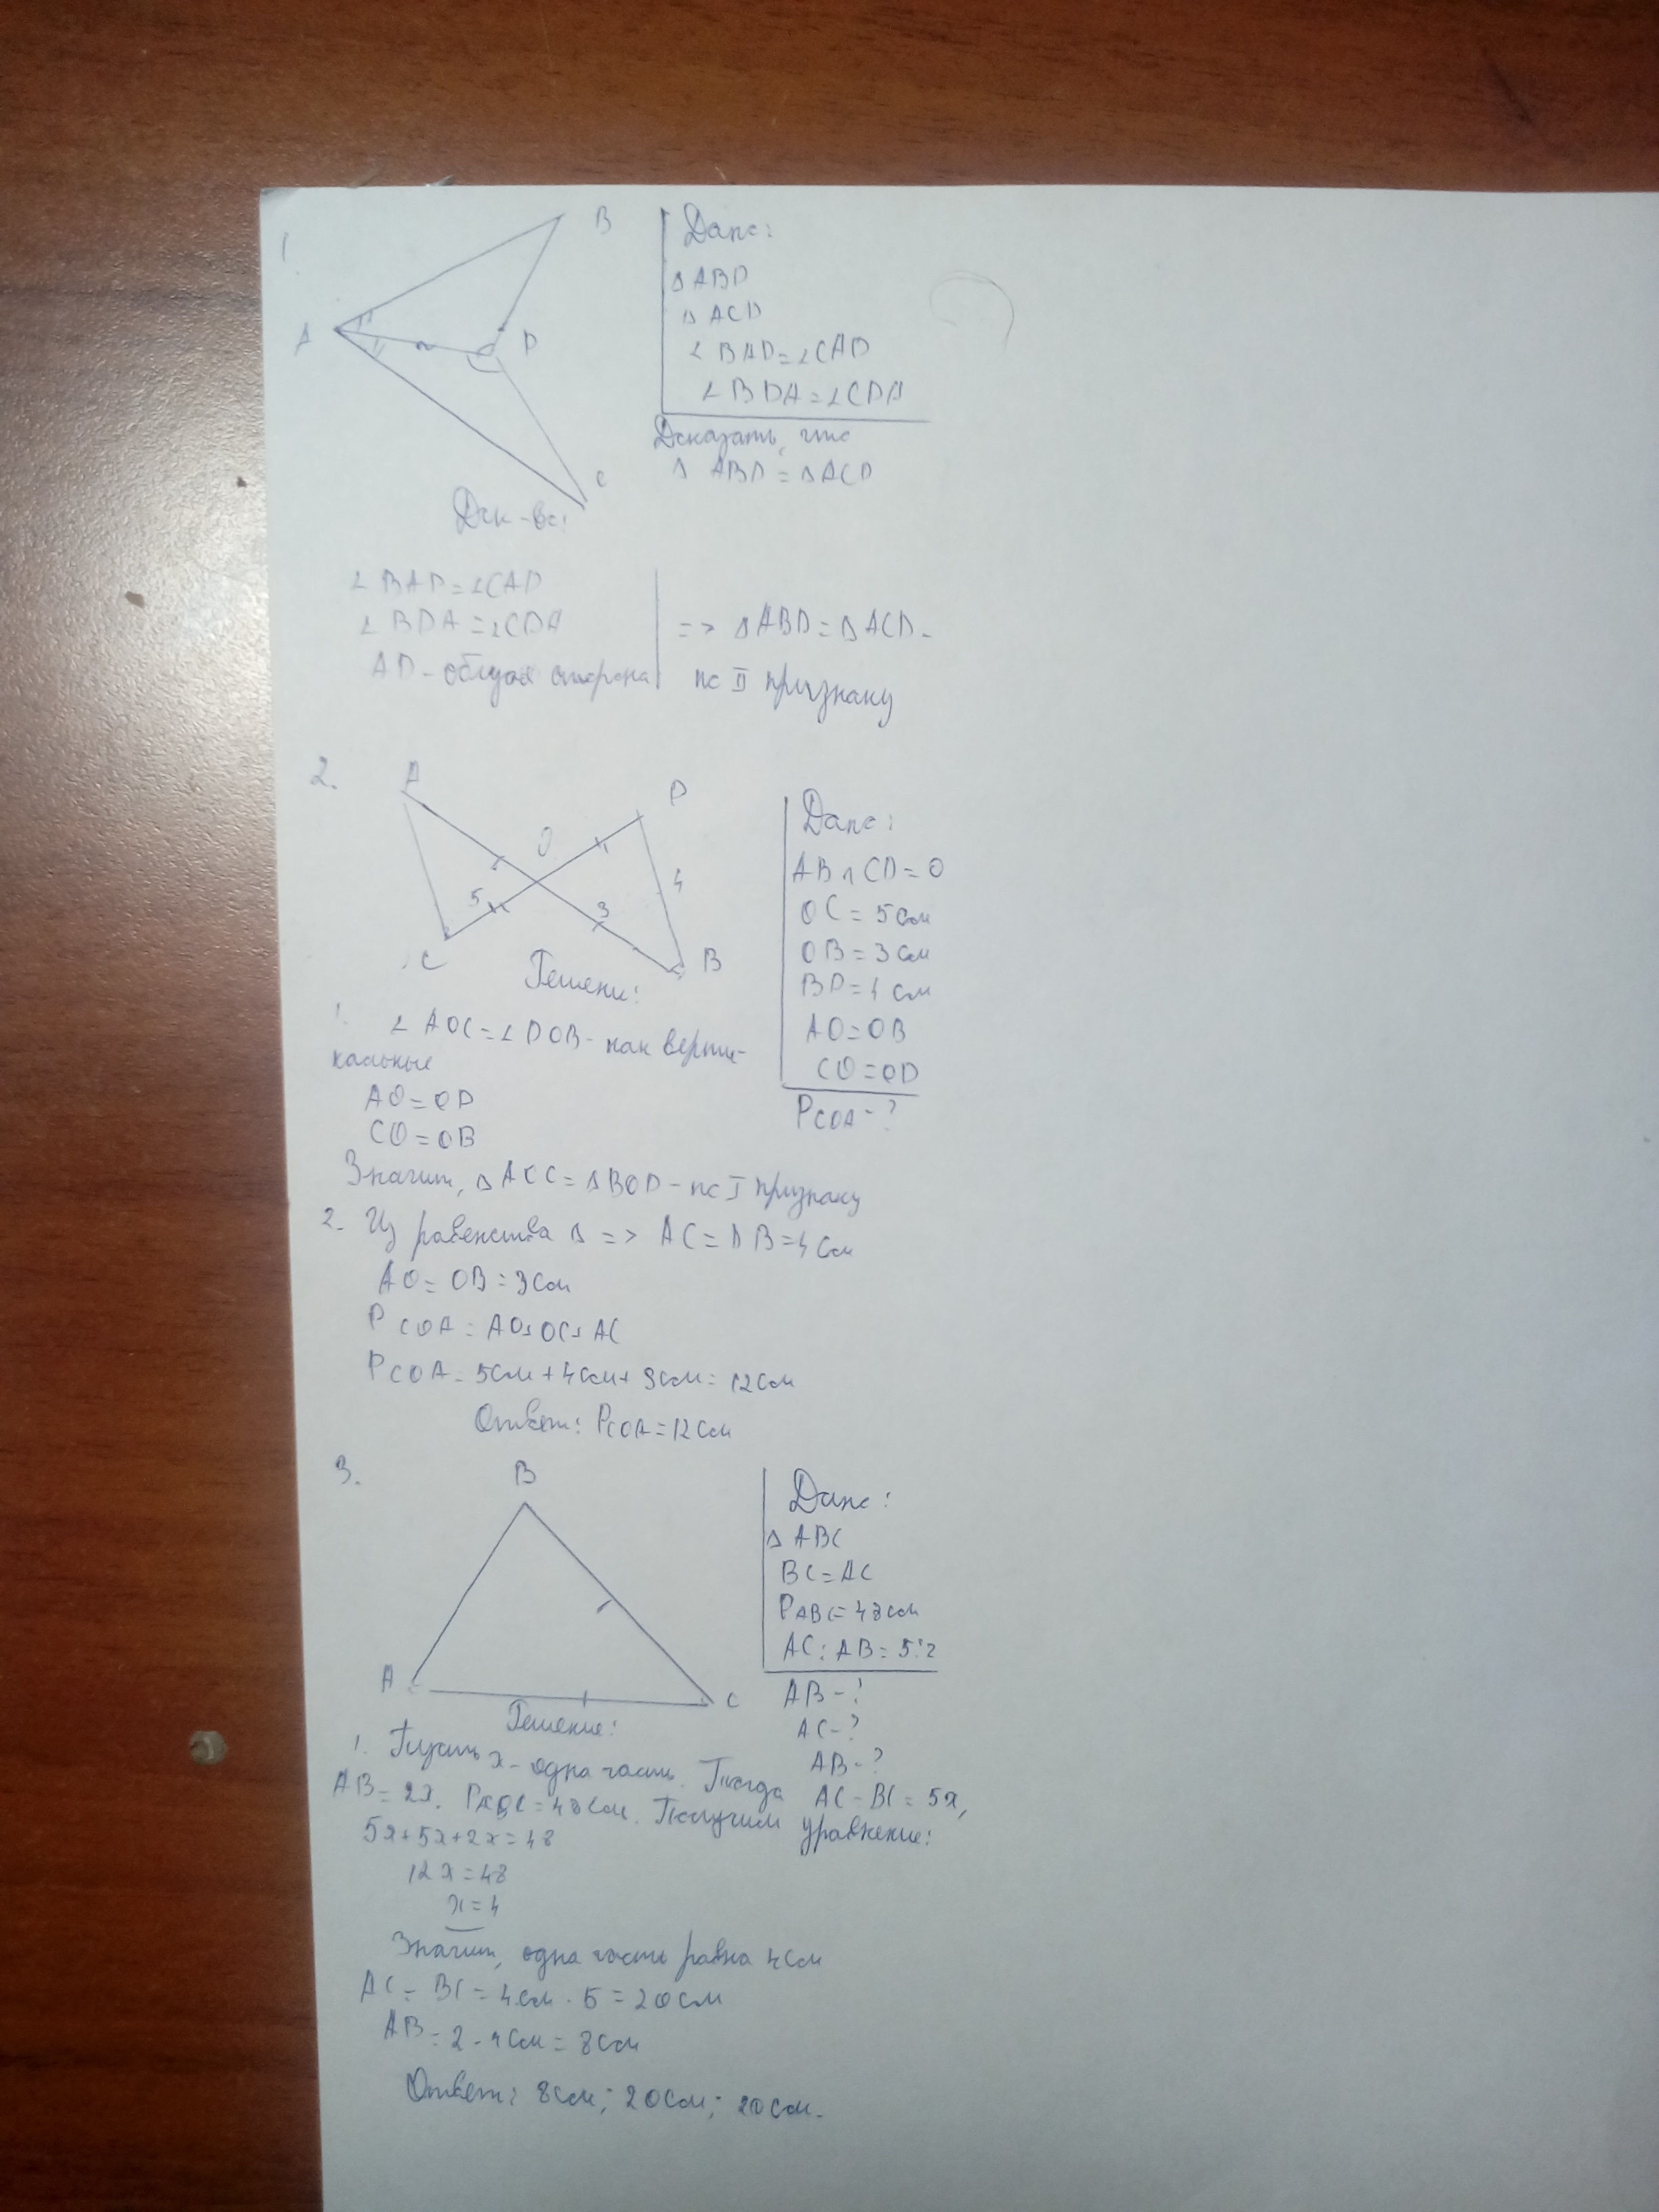 1
B
A
D
C
Дано:
△ ABD
△ ACD
∠ BAD = ∠CAD
∠ BDA = ∠CDA
Доказать, что
△ ABD = △ACD
Док-во:
∠ BAD = ∠CAD
∠ BDA = ∠CDA
AD - общая сторона
=> △ABD = △ACD -
по II признаку
2.
A
D
O
5
3
4
C
B
Дано:
AB ∩ CD = O
OC = 5 см
OB = 3 см
BD = 4 см
AO = OB
CO = OD
PCOA - ?
Решени:
1.
∠ AOC = ∠ DOB - как верти-
кальные
AO = OD
CO = OB
Значит, △ AOC = △ BOD - по I признаку
2. Из равенства △ => AC = DB = 4 см
AO = OB = 3 см
P COA = AO + OC + AC
PCOA = 5см + 4см + 3см = 12см
Ответ: PCOA = 12см
3.
B
A
C
Дано:
△ ABC
BC = AC
PABC = 48см
AC : AB = 5:2
AB - ?
AC - ?
AB - ?
Решение:
1. Пусть x - одна часть. Тогда AC = BC = 5x,
AB = 2x. PABC = 48см. Получим уравнение:
5x + 5x + 2x = 48
12x = 48
x = 4
Значит, одна часть равна 4см
AC = BC = 4см · 5 = 20см
AB = 2 · 4см = 8см
Ответ: 8см; 20см; 20см.